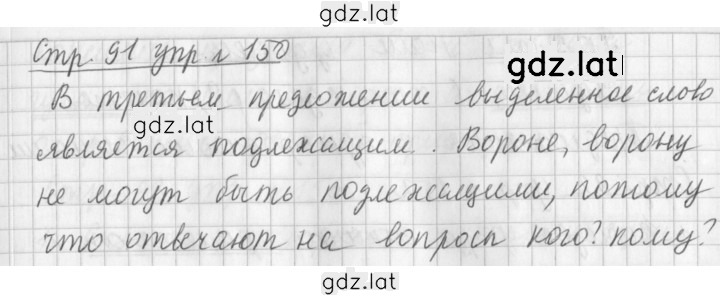 gdz.lat
Стр. 91 упр. л 150
gdz.lat
В третьем предложении выделенное слово
gdz.lat
является подлежащим. Вороне, ворону
не могут быть подлежащими, потому
что отвечают на вопросы кого? кому?
gdz.lat